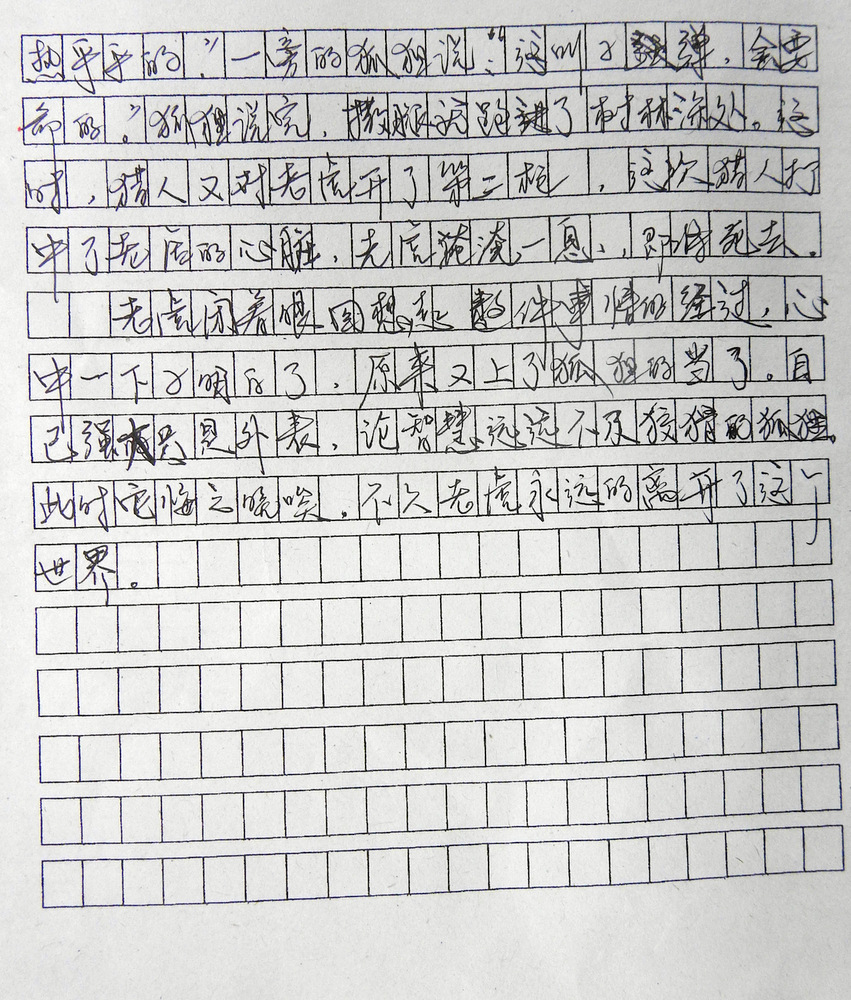 热乎乎的?”一旁的狐狸说:“这叫子弹,会要
命的。”狐狸说完,撒腿就跑进了树林深处。这
时,猎人又对老虎开了第二枪,这次猎人打
中了老虎的心脏,老虎奄奄一息,即将死去。
老虎闭着眼回想起整件事情的经过,心
中一下子明白了,原来又上了狐狸的当了。自
己强大只是外表,论智慧远远不及狡猾的狐狸。
此时它悔之晚矣,不久老虎永远的离开了这个
世界。